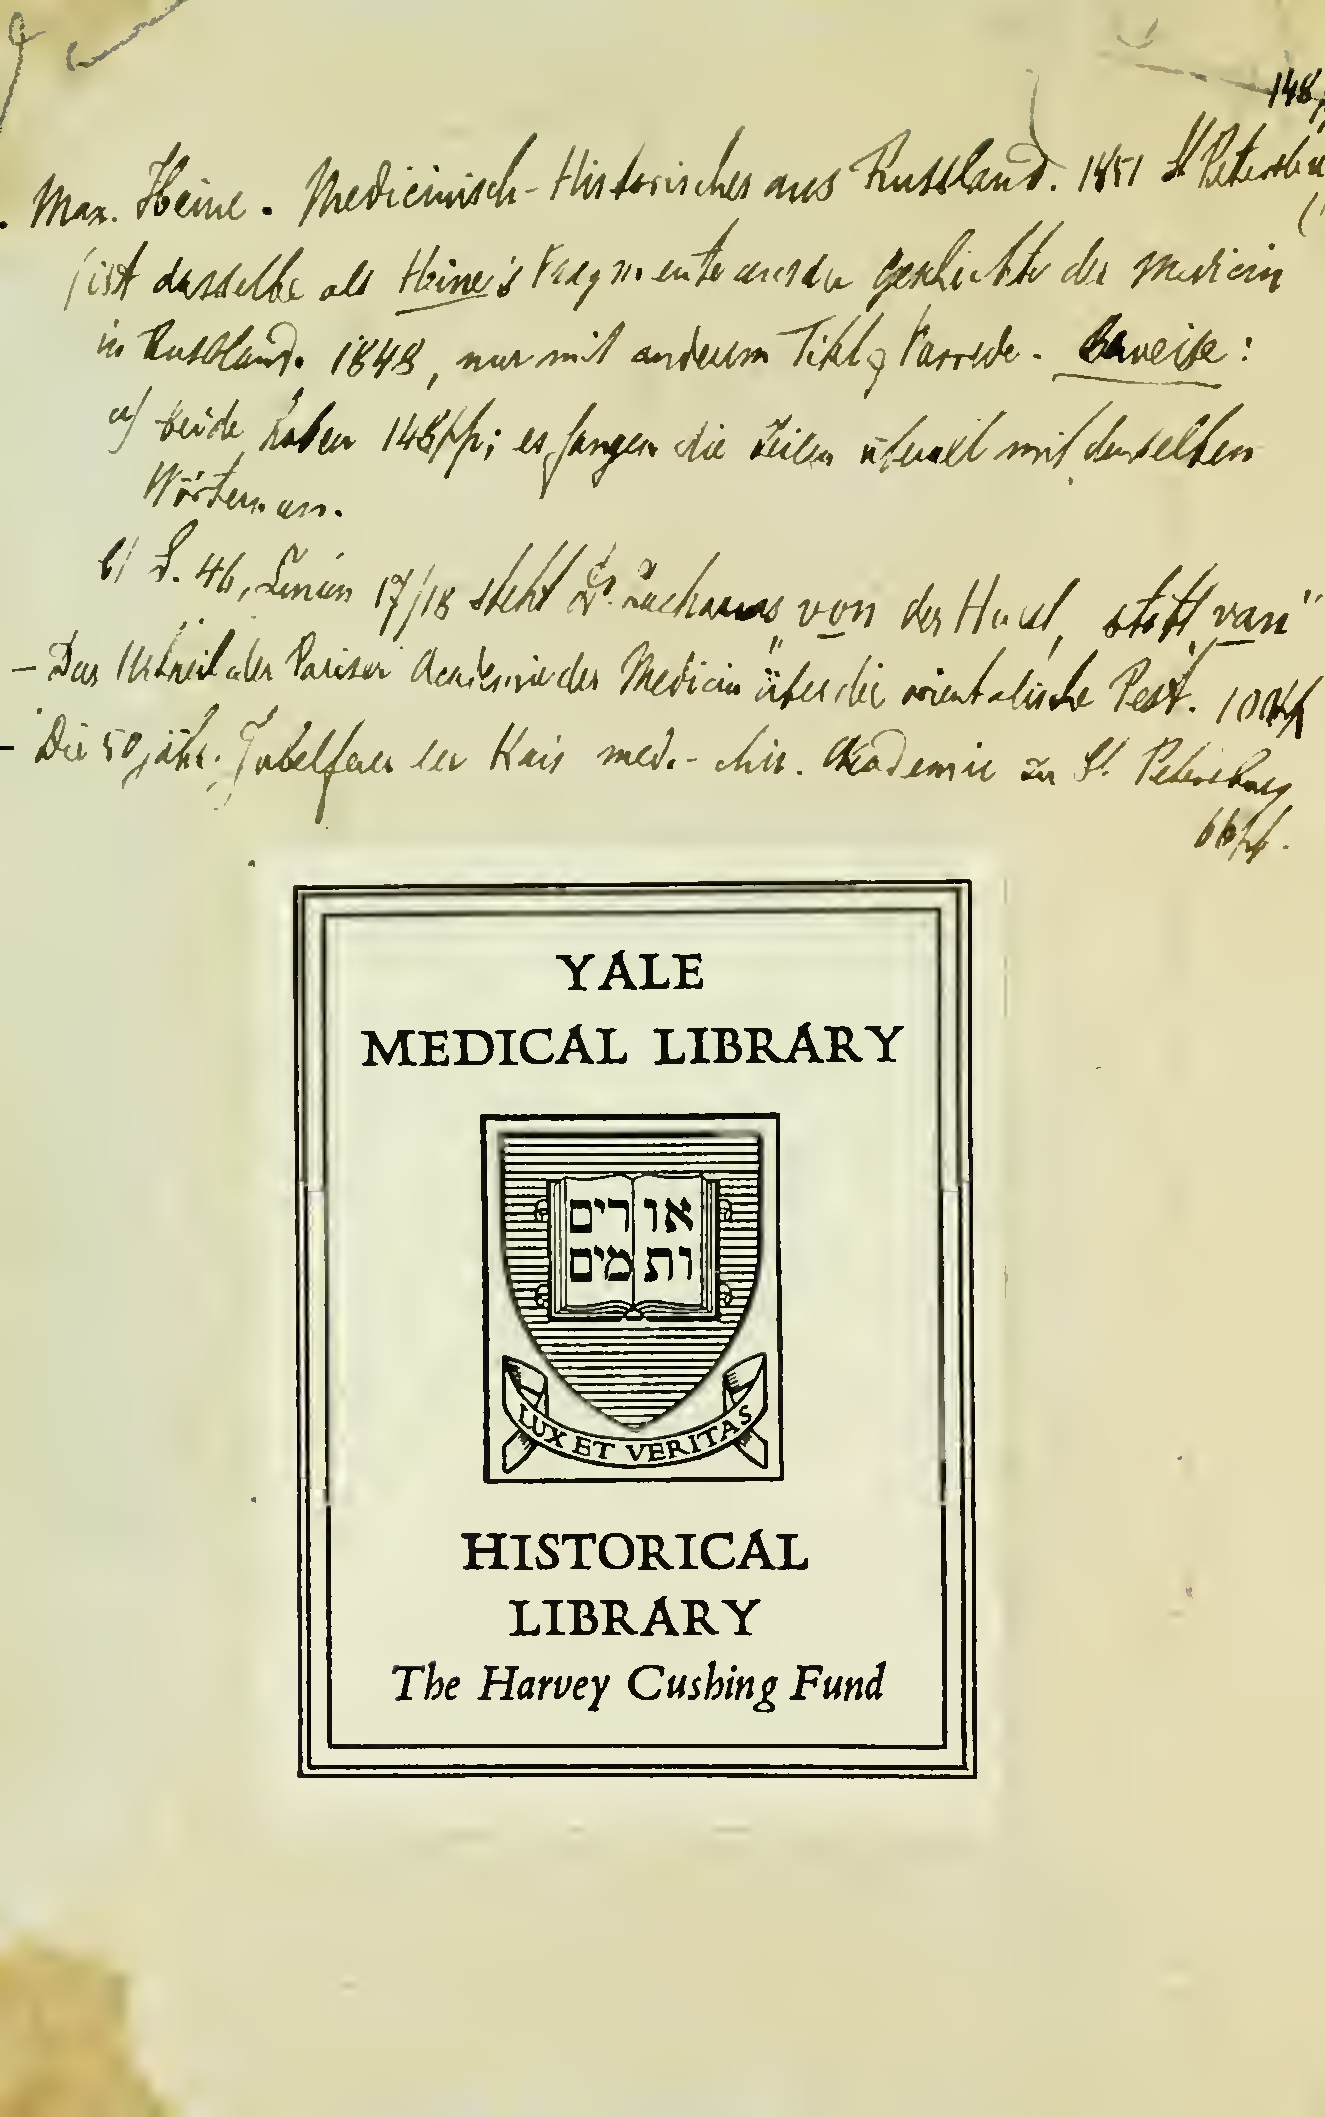 148
Max. Heine. Medicinisch-Historisches aus Russland. 1851 St Petersbu
(ist dasselbe als Heine's Fragmente aus der Geschichte der Medicin
in Russland. 1848, nur mit anderem Titel & Vorrede. Beweise:
a) beide haben 148 pp; es fangen die Zeilen überall mit denselben
Wörtern an.
b) S. 46, Linien 17/18 steht Dr. Zacharias "von der Hulst, statt "van"
– Das Urtheil der Pariser Academie der Medicin über die orientalische Pest. 100 pp
– Die 50 jähr. Jubelfeier der Kais med.-chir. Akademie zu St. Petersburg
66 pp.
YALE
MEDICAL LIBRARY
אורים
ותמים
LUX ET VERITAS
HISTORICAL
LIBRARY
The Harvey Cushing Fund